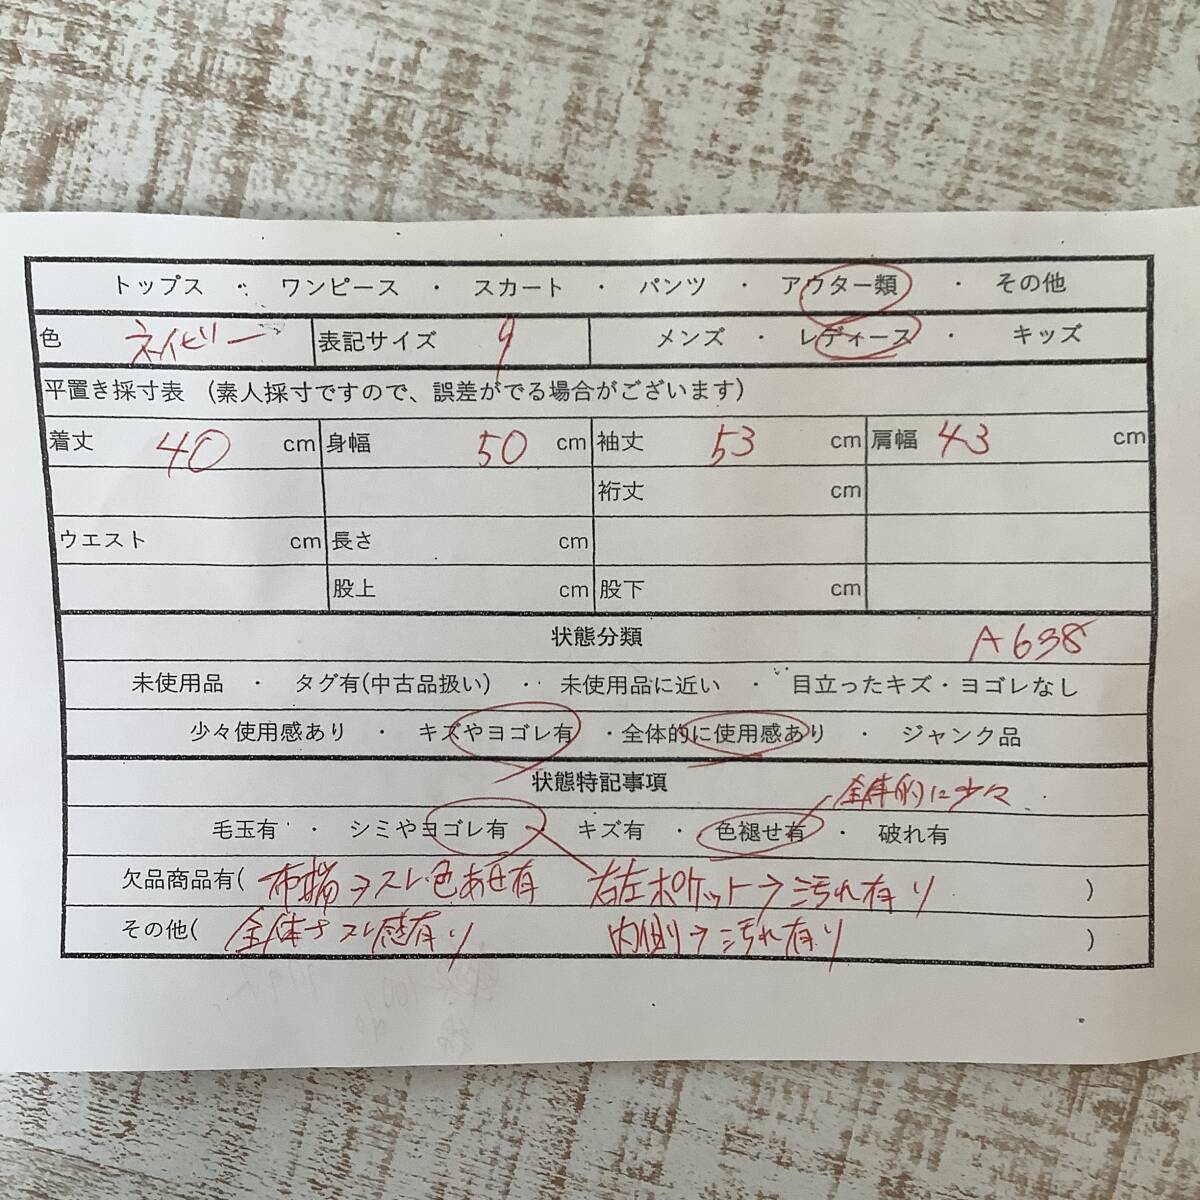 トップス ・ ワンピース ・ スカート ・ パンツ ・ アウター類 ・ その他
色 ネイビー 表記サイズ 9 メンズ ・ レディース ・ キッズ
平置き採寸表 (素人採寸ですので、誤差がでる場合がございます)
着丈 40 cm 身幅 50 cm 袖丈 53 cm 肩幅 43 cm
裄丈 cm
ウエスト cm 長さ cm
股上 cm 股下 cm
状態分類 A638
未使用品 ・ タグ有(中古品扱い) ・ 未使用品に近い ・ 目立ったキズ・ヨゴレなし
少々使用感あり ・ キズやヨゴレ有 ・全体的に使用感あり ・ ジャンク品
状態特記事項 全体的に少々
毛玉有 ・ シミやヨゴレ有 ・ キズ有 ・ 色褪せ有 ・ 破れ有
欠品商品有( 布端→スレ・色あせ有 右左ポケット→汚れ有り )
その他( 全体 スレ感有り 内側→汚れ有り )